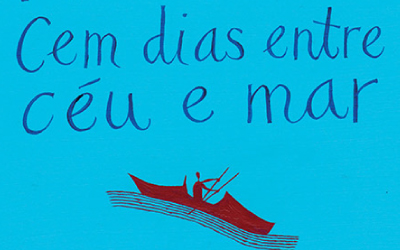 Cem dias entre
céu e mar